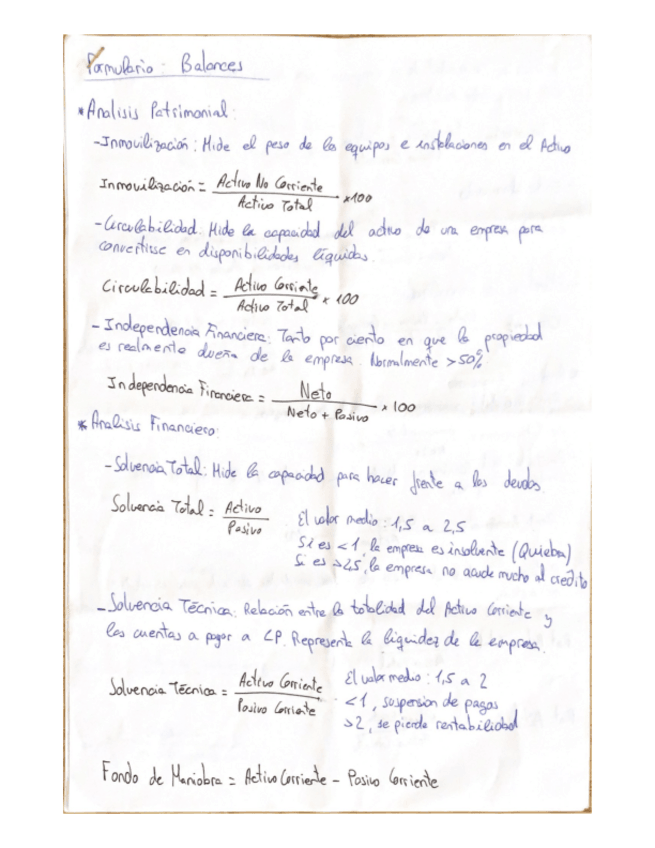 Formulario: Balances
* Analisis Patrimonial:
- Inmovilización: Mide el peso de los equipos e instalaciones en el Activo
Inmovilización = Activo No Corriente / Activo Total x100
- Circulabilidad: Mide la capacidad del activo de una empresa para
convertirse en disponibilidades líquidas.
Circulabilidad = Activo Corriente / Activo Total x 100
- Independencia Financiera: Tanto por ciento en que la propiedad
es realmente dueña de la empresa. Normalmente >50%
Independencia Financiera = Neto / Neto + Pasivo x 100
* Analisis Financiero:
- Solvencia Total: Mide la capacidad para hacer frente a las deudas
Solvencia Total = Activo / Pasivo
El valor medio: 1,5 a 2,5
Si es <1, la empresa es insolvente (Quiebra)
Si es >2,5, la empresa no acude mucho al credito
- Solvencia Técnica: Relación entre la totalidad del Activo Corriente y
las cuentas a pagar a CP. Representa la liquidez de la empresa.
Solvencia Técnica = Activo Corriente / Pasivo Corriente
El valor medio: 1,5 a 2
<1, suspension de pagos
>2, se pierde rentabilidad
Fondo de Maniobra = Activo Corriente - Pasivo Corriente